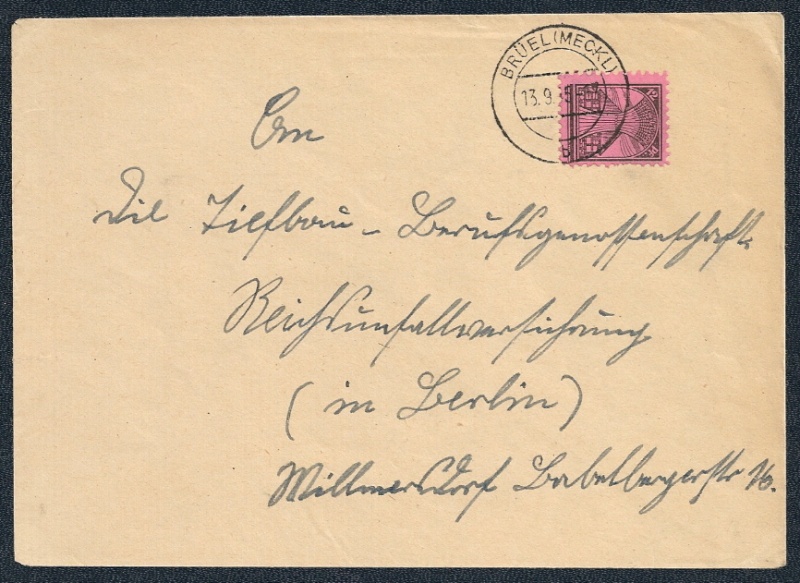 BRÜEL (MECKL)
13.9.45
b
An
Die Tiefbau - Berufsgenossenschaft.
Reichsunfallversichrung
(in Berlin)
Willmersdorf Babelbergerstr 16.